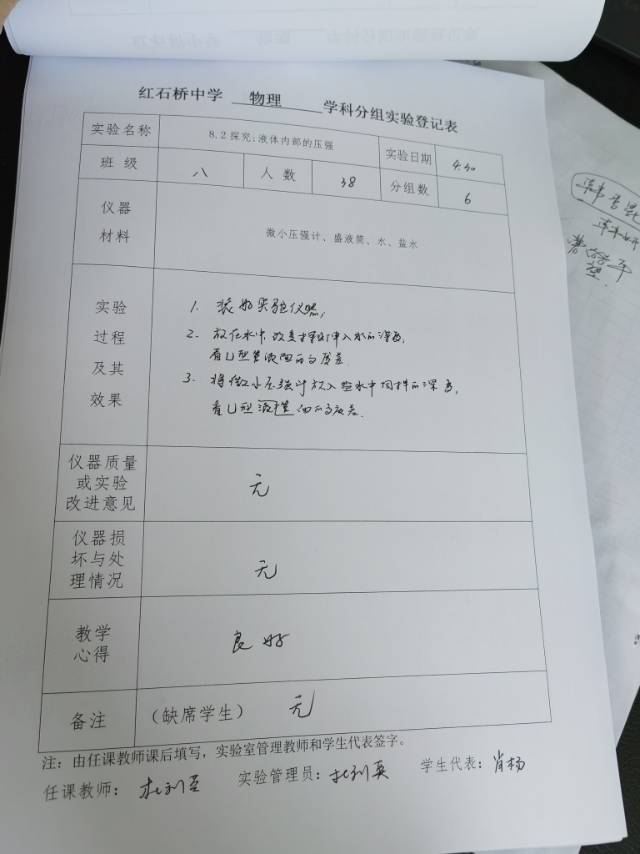 红石桥中学 物理 学科分组实验登记表
实验名称 8.2探究:液体内部的压强 实验日期 4.30
班级 八 人数 38 分组数 6
仪器
材料
微小压强计、盛液筒、水、盐水
实验
过程
及其
效果
1. 装好实验仪器,
2. 放在水中,改变探头伸入水的深度,
看U型管液面的高度差
3. 将微小压强计放入盐水中同样的深度,
看U型液面的高度差.
仪器质量
或实验
改进意见
无
仪器损
坏与处
理情况
无
教学
心得
良好
备注 (缺席学生) 无
注:由任课教师课后填写,实验室管理教师和学生代表签字。
任课教师: 实验管理员: 学生代表:肖杨